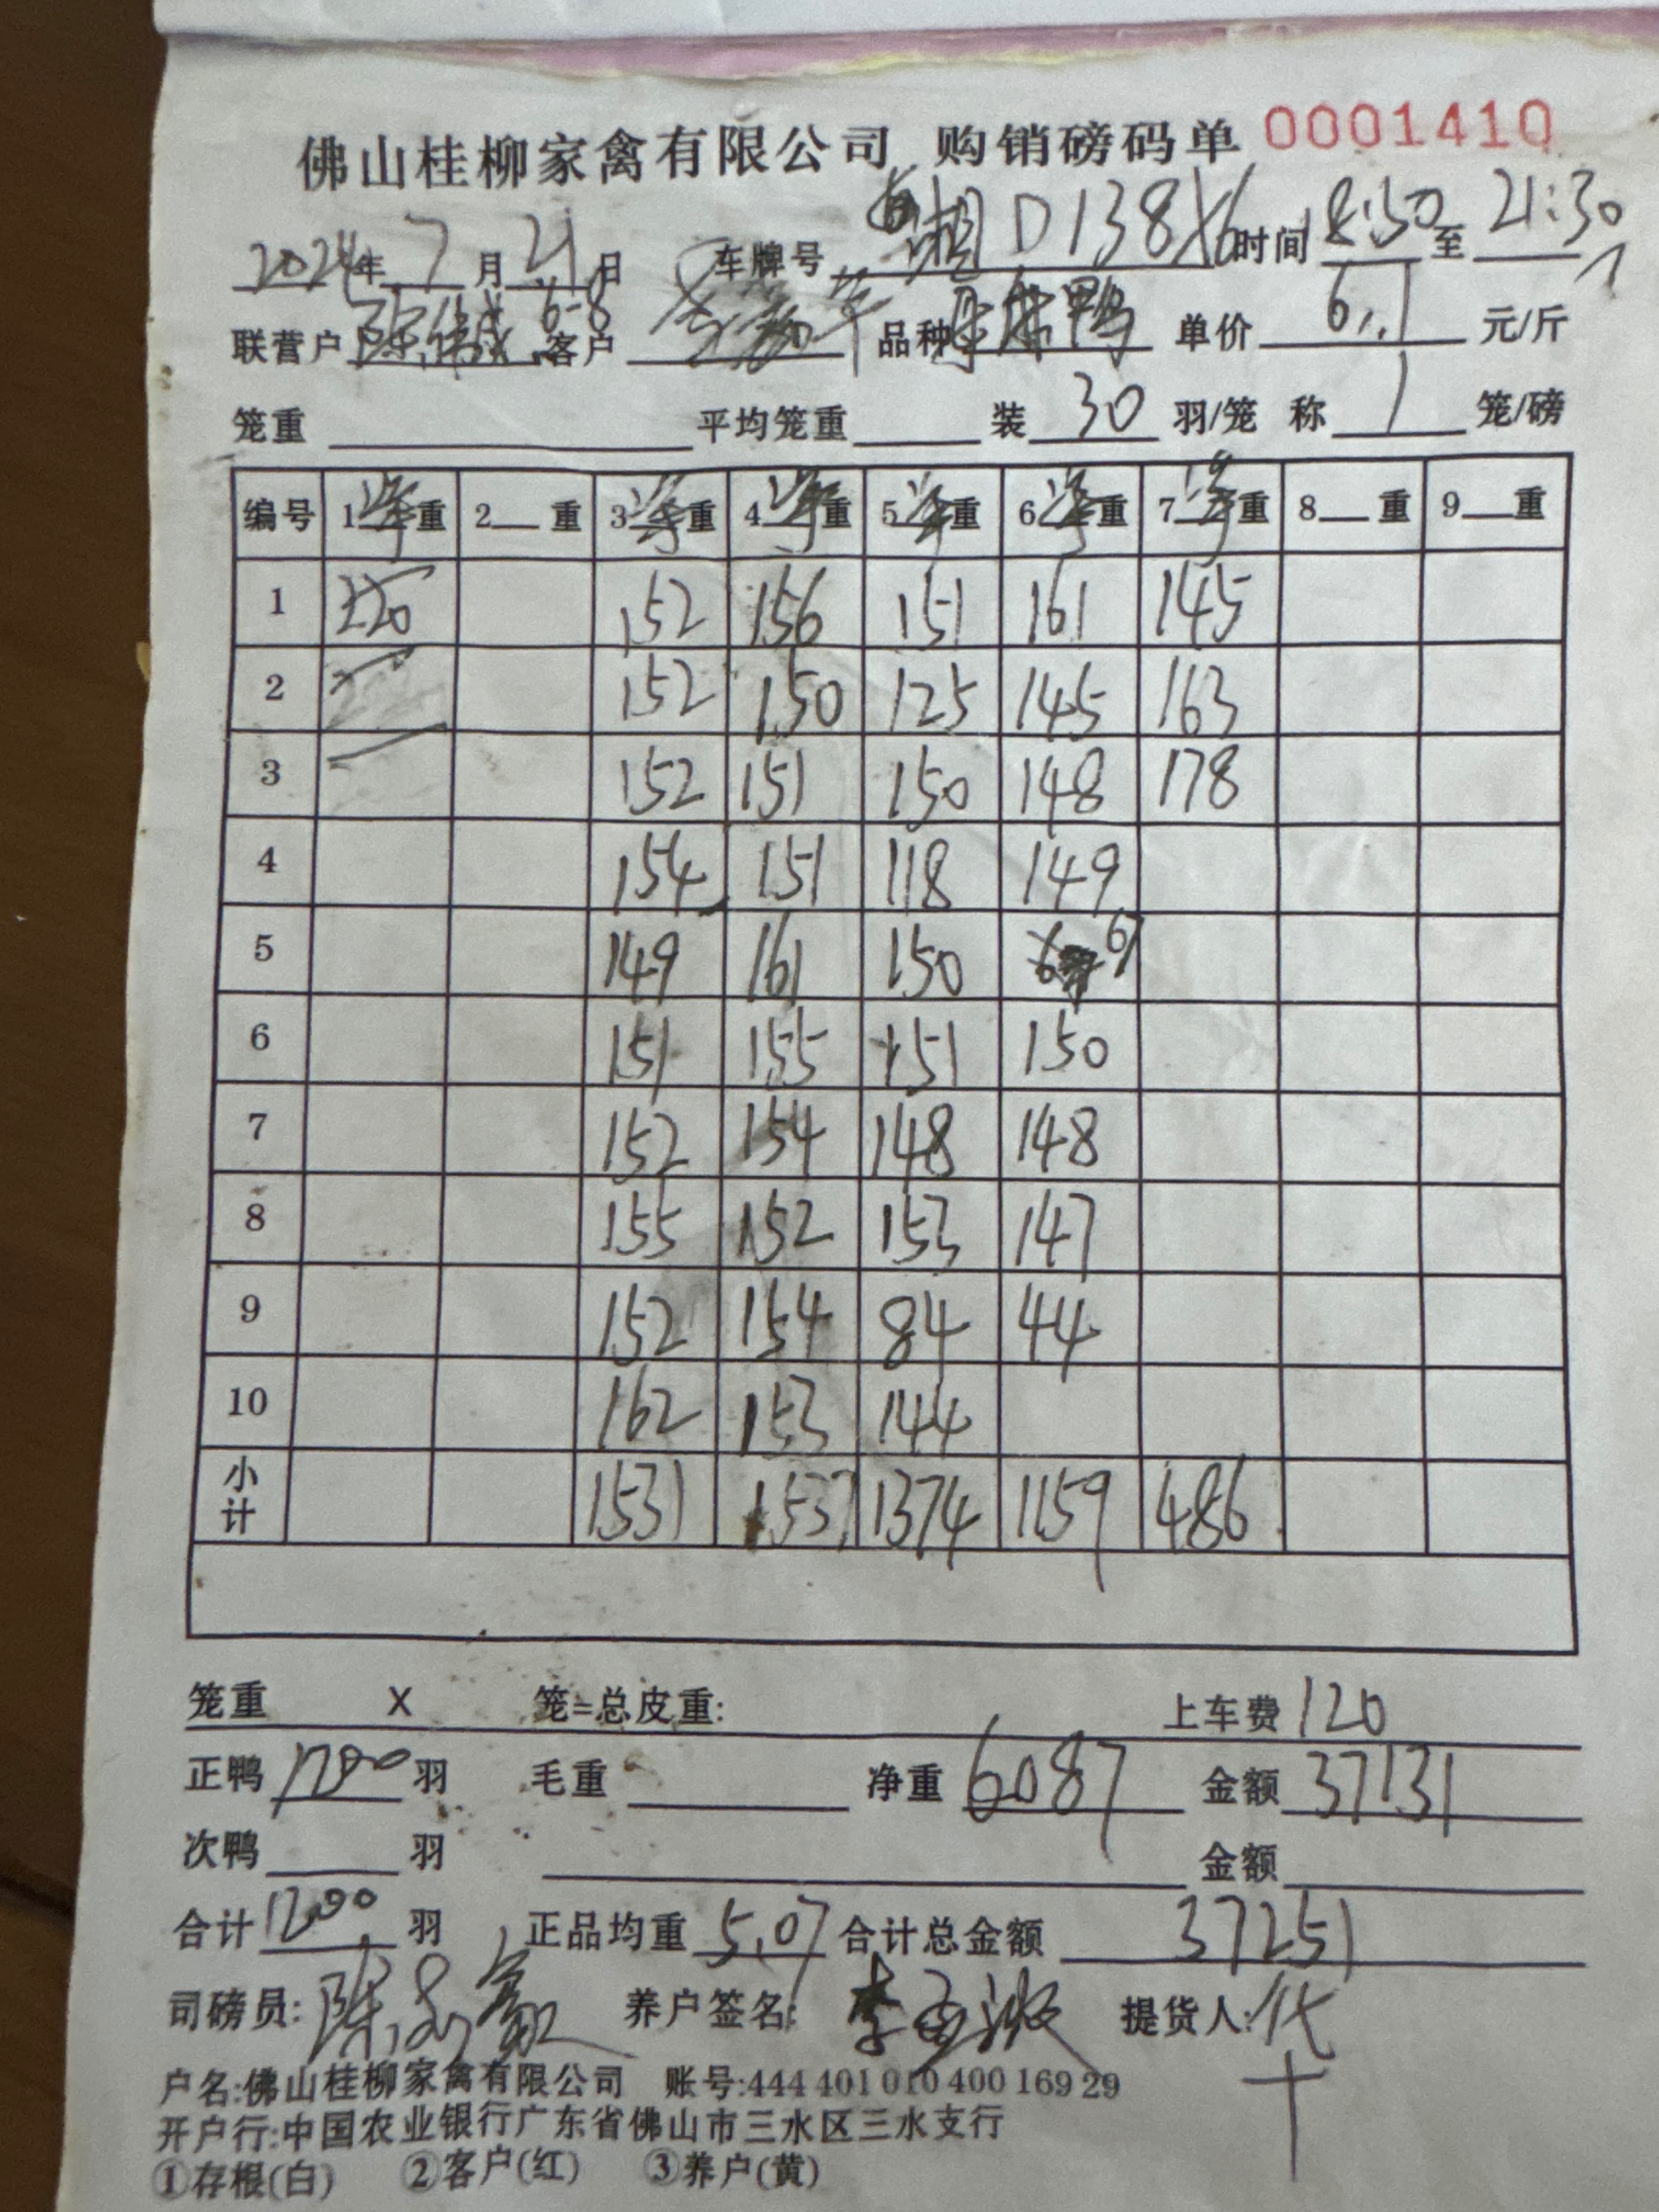 佛山桂柳家禽有限公司 购销磅码单 0001410
2024年 7 月 21 日 车牌号 湘D138X6 时间 18:50 至 21:30
联营户 陈伟诚 6-8 客户 品种 鸭 单价 6.1 元/斤
笼重 平均笼重 装 30 羽/笼 称 1 笼/磅
编号 1 净 重 2 重 3 净 重 4 净 重 5 净 重 6 净 重 7 净 重 8 重 9 重
1 152 156 151 161 145
2 152 150 125 145 163
3 152 151 150 148 178
4 154 151 118 149
5 149 161 150 67
6 151 155 151 150
7 152 154 148 148
8 155 152 153 147
9 152 154 84 44
10 162 153 144
小计 1531 1537 1374 1159 486
笼重 X 笼=总皮重: 上车费 120
正鸭 1200 羽 毛重 净重 6087 金额 37131
次鸭 羽 金额
合计 1200 羽 正品均重 5.07 合计总金额 37251
司磅员: 陈 养户签名: 李 提货人: 代
户名:佛山桂柳家禽有限公司 账号:444 401 010 400 169 29
开户行:中国农业银行广东省佛山市三水区三水支行
①存根(白) ②客户(红) ③养户(黄)